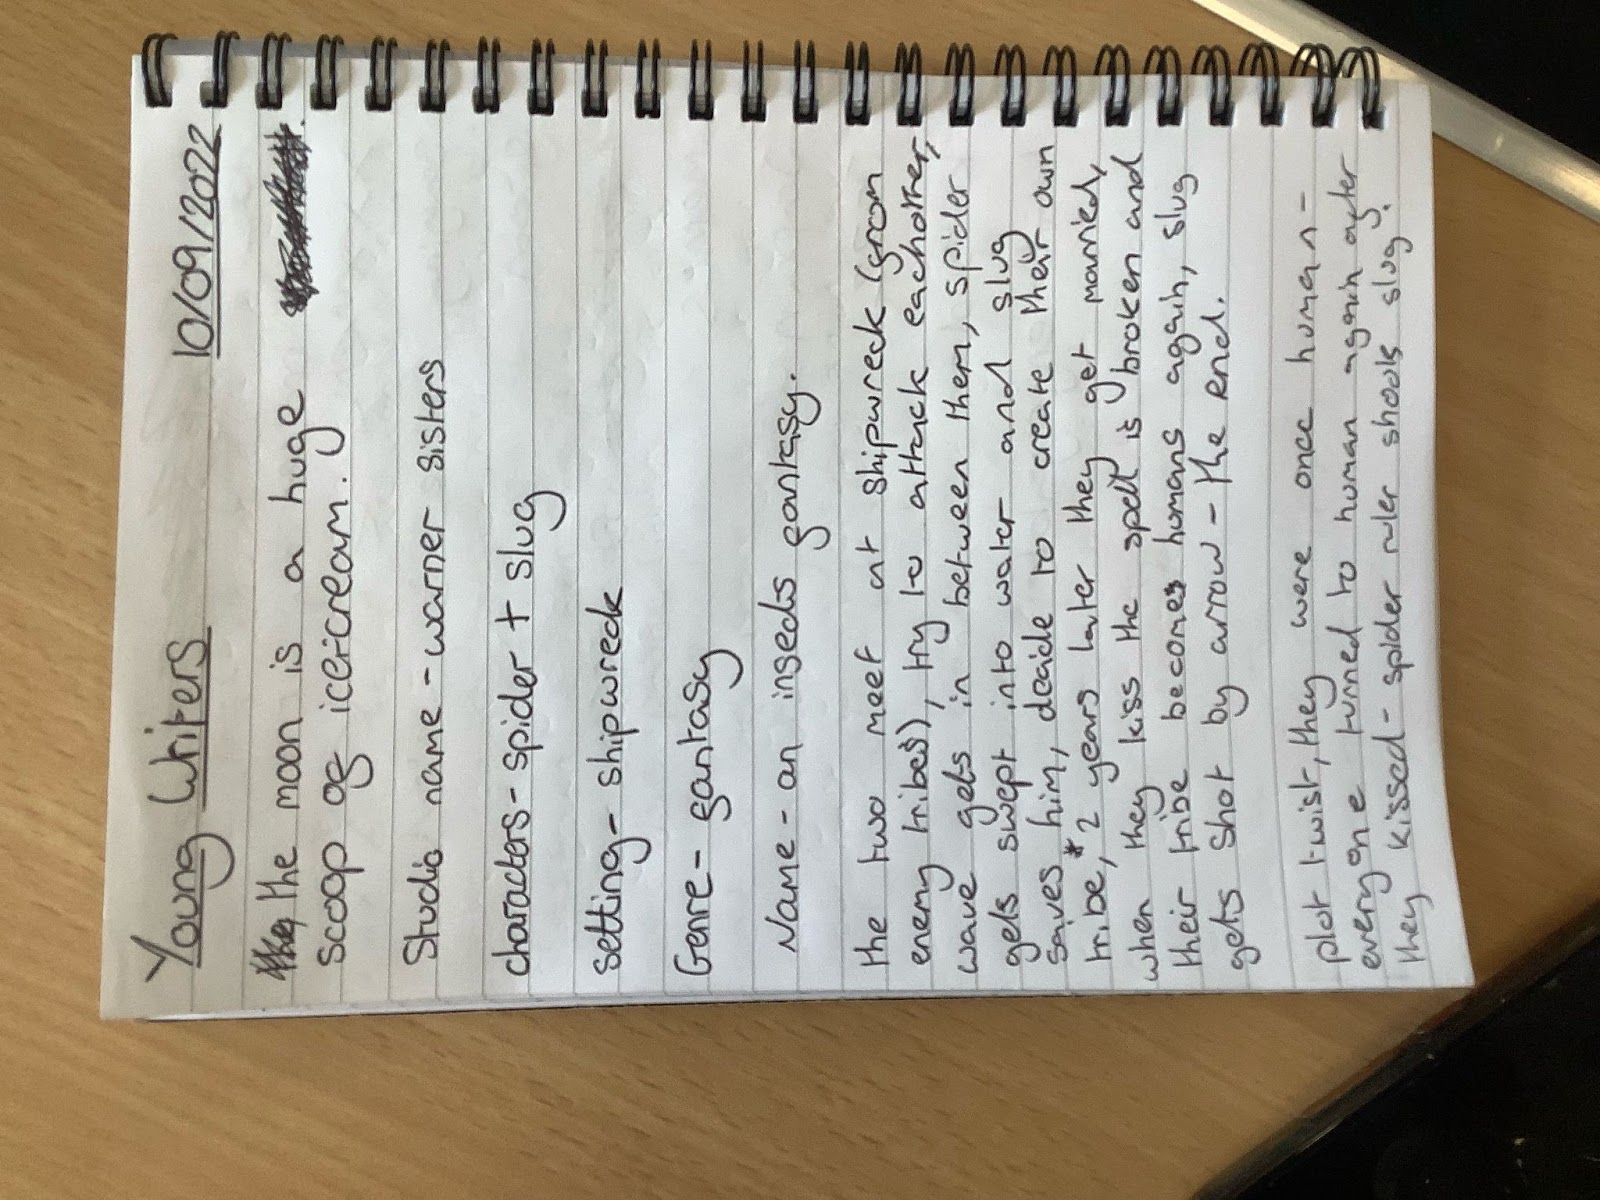 Young Writers 10/09/2022
the moon is a huge
scoop of icericream.
Studio name - warner sisters
characters - spider + slug
setting - shipwreck
Genre - fantasy
Name - an insects fantasy.
the two meet at shipwreck (from
enemy tribes), try to attack eachother,
wave gets in between them, spider
gets swept into water and slug
saives him, decide to create their own
tribe, * 2 years later they get married,
when they kiss the spell is broken and
their tribe becomes humans again, slug
gets shot by arrow - the end.
plot twist, they were once human -
everyone turned to human again after
they kissed - spider ruler shoots slug.